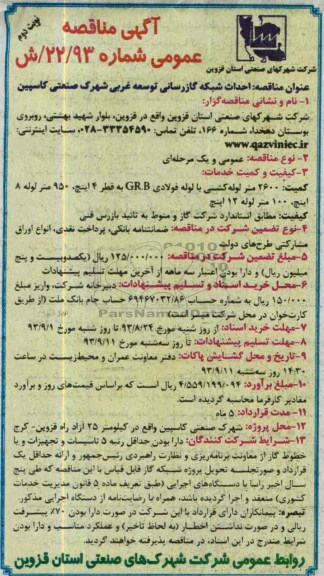 نوبت دوم
آگهی مناقصه
عمومی شماره ۲۲/۹۳/ش
شرکت شهرکهای صنعتی استان قزوین
عنوان مناقصه: احداث شبکه گازرسانی توسعه غربی شهرک صنعتی کاسپین
۱- نام و نشانی مناقصه‌گزار:
شرکت شهرکهای صنعتی استان قزوین واقع در قزوین، بلوار شهید بهشتی، روبروی
بوستان دهخدا، شماره ۱۶۶، تلفن تماس: ۳۳۳۵۴۵۹۰-۰۲۸، سایت اینترنتی:
www.qazviniec.ir
۲- نوع مناقصه: عمومی و یک مرحله‌ای
۳- کیفیت و کمیت خدمات:
کمیت: ۲۶۰۰ متر لوله‌کشی با لوله فولادی GR.B به قطر ۴ اینچ، ۹۵۰ متر لوله ۸
اینچ، ۱۰۰ متر لوله ۱۲ اینچ
کیفیت: مطابق استاندارد شرکت گاز و منوط به تائید بازرس فنی
۴- نوع تضمین شرکت در مناقصه: ضمانتنامه بانکی، پرداخت نقدی، انواع اوراق
مشارکتی طرح‌های دولت
۵- مبلغ تضمین شرکت در مناقصه: ۱۲۵/۰۰۰/۰۰۰ ریال (یکصدوبیست و پنج
میلیون ریال) و دارا بودن اعتبار سه ماهه از آخرین مهلت تسلیم پیشنهادات
۶- محل خرید اسناد و تسلیم پیشنهادات: دبیرخانه شرکت، واریز مبلغ
۱۵۰/۰۰۰ ریال به شماره حساب ۶۹۴۶۷۰۳۲/۸۶ حساب جام بانک ملت (از طریق
کارت‌خوان در محل شرکت میسر است)
۷- مهلت خرید اسناد: از روز شنبه مورخ ۹۳/۸/۲۴ تا روز شنبه مورخ ۹۳/۹/۱
۸- مهلت تسلیم پیشنهادات: تا روز سه‌شنبه مورخ ۹۳/۹/۱۱
۹- تاریخ و محل گشایش پاکات: دفتر معاونت عمران و محیط‌زیست در ساعت
۱۴:۳۰ روز سه‌شنبه ۹۳/۹/۱۱
۱۰- مبلغ برآورد: ۴/۵۵۹/۱۹۹/۰۹۴ ریال است که براساس قیمت‌های روز و برآورد
مقادیر کارفرما محاسبه گردیده است.
۱۱- مدت قرارداد: ۵ ماه
۱۲- محل پروژه: شهرک صنعتی کاسپین واقع در کیلومتر ۲۵ آزاد راه قزوین- کرج
۱۳- شرایط شرکت کنندگان: دارا بودن حداقل رتبه ۵ تاسیسات و تجهیزات و یا
خطوط گاز از معاونت برنامه‌ریزی و نظارت راهبردی رئیس‌جمهور و ارائه حداقل یک
قرارداد و صورتجلسه تحویل پروژه شبکه گاز قابل قیاس با این مناقصه که طی پنج
سال اخیر راسا با دستگاه‌های اجرایی (طبق تعریف ماده ۵ قانون مدیریت خدمات
کشوری) منعقد و اجرا گردیده باشد، همراه با رضایت‌نامه از دستگاه اجرایی مذکور.
تبصره: پیمانکاران دارای قرارداد با این شرکت در صورت دارا بودن ۷۰٪ پیشرفت
ریالی و در صورت نداشتن اخطار (به لحاظ تاخیر) و عملکرد مناسب و دارا بودن
شرایط مندرج در این اسناد، در مناقصه پذیرفته خواهند گردید.
روابط عمومی شرکت شهرک‌های صنعتی استان قزوین